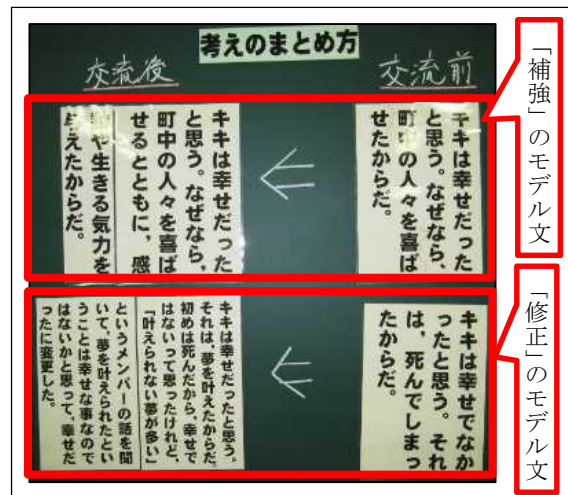 考えのまとめ方
交流前
交流後
「補強」のモデル文
キキは幸せだった
と思う。なぜなら、
町中の人々を喜ば
せたからだ。
キキは幸せだった
と思う。なぜなら、
町中の人々を喜ば
せるとともに、感
動や生きる気力を
与えたからだ。
「修正」のモデル文
キキは幸せでなか
ったと思う。それ
は、死んでしまっ
たからだ。
キキは幸せだったと思う。
それは、夢を叶えたからだ。
初めは死んだから、幸せで
はないって思ったけれど、
「叶えられない夢が多い」
というメンバーの話を聞
いて、夢を叶えられたとい
うことは幸せな事なので
はないかと思って、幸せだ
ったに変更した。